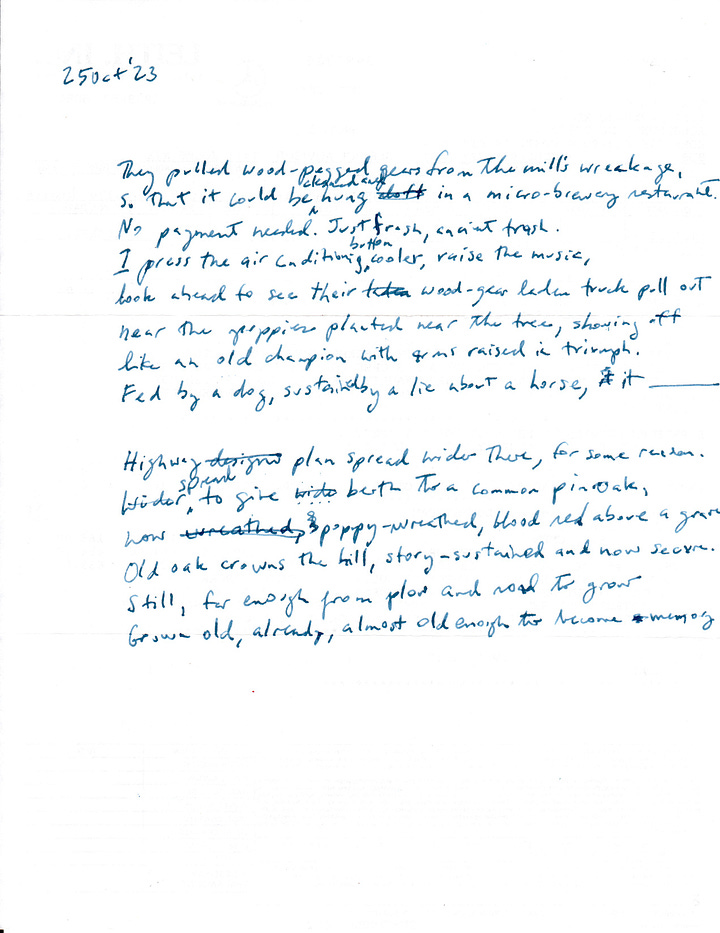 25 Oct '23
They pulled wood-pegged gears from the mill's wreakage,
So that it could be cleaned and hung in a micro-brewery restaurant.
No payment needed. Just fresh, ancient trash.
I press the air conditioning button, cooler, raise the music,
look ahead to see their wood-gear laden truck pull out
near the poppies planted near the tree, showing off
like an old champion with arms raised in triumph.
Fed by a dog, sustained by a lie about a horse, it
Highway designs plan spread wider there, for some reason.
Wider spread, to give wide berth to a common pin oak,
now wreathed, poppy-wreathed, blood red above a grave
Old oak crowns the hill, story-sustained and now secure.
Still, far enough from plow and road to grow
Grown old, already, almost old enough to become memory